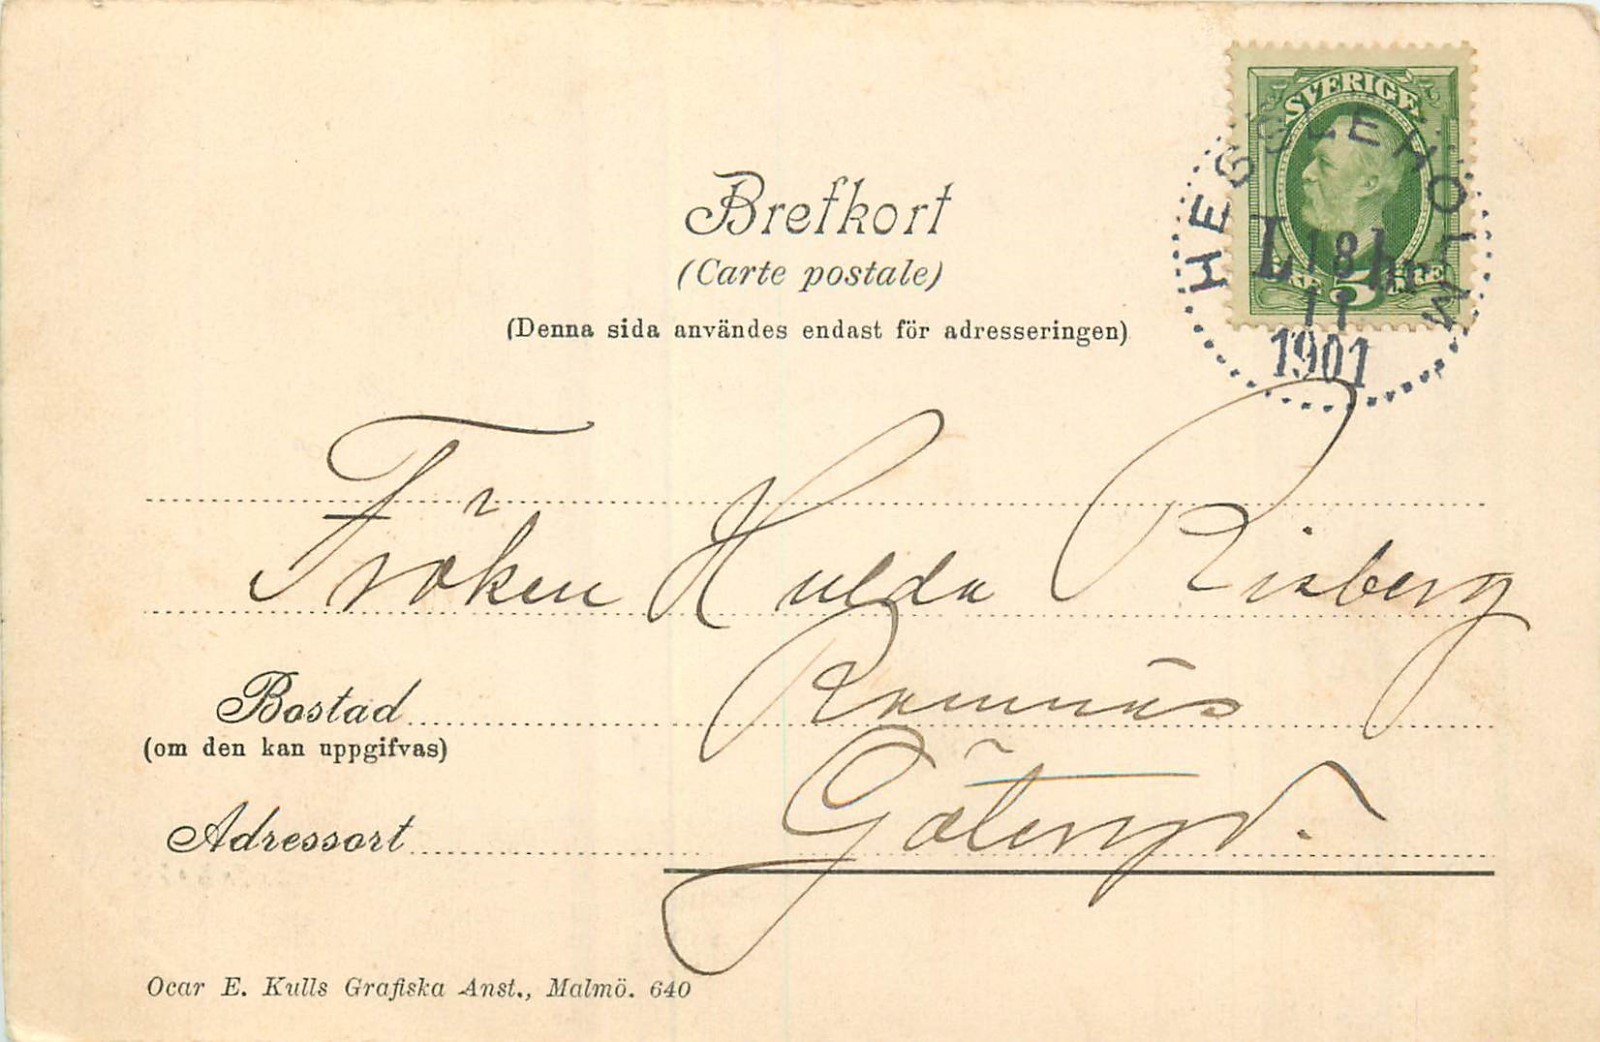 SVERIGE
HESSLEHOLM
L 18 1 kr
11
1901
5
Brefkort
(Carte postale)
(Denna sida användes endast för adresseringen)
Fröken Hulda Risberg
Ramnäs
Bostad
(om den kan uppgifvas)
Göteryd.
Adressort
Ocar E. Kulls Grafiska Anst., Malmö. 640